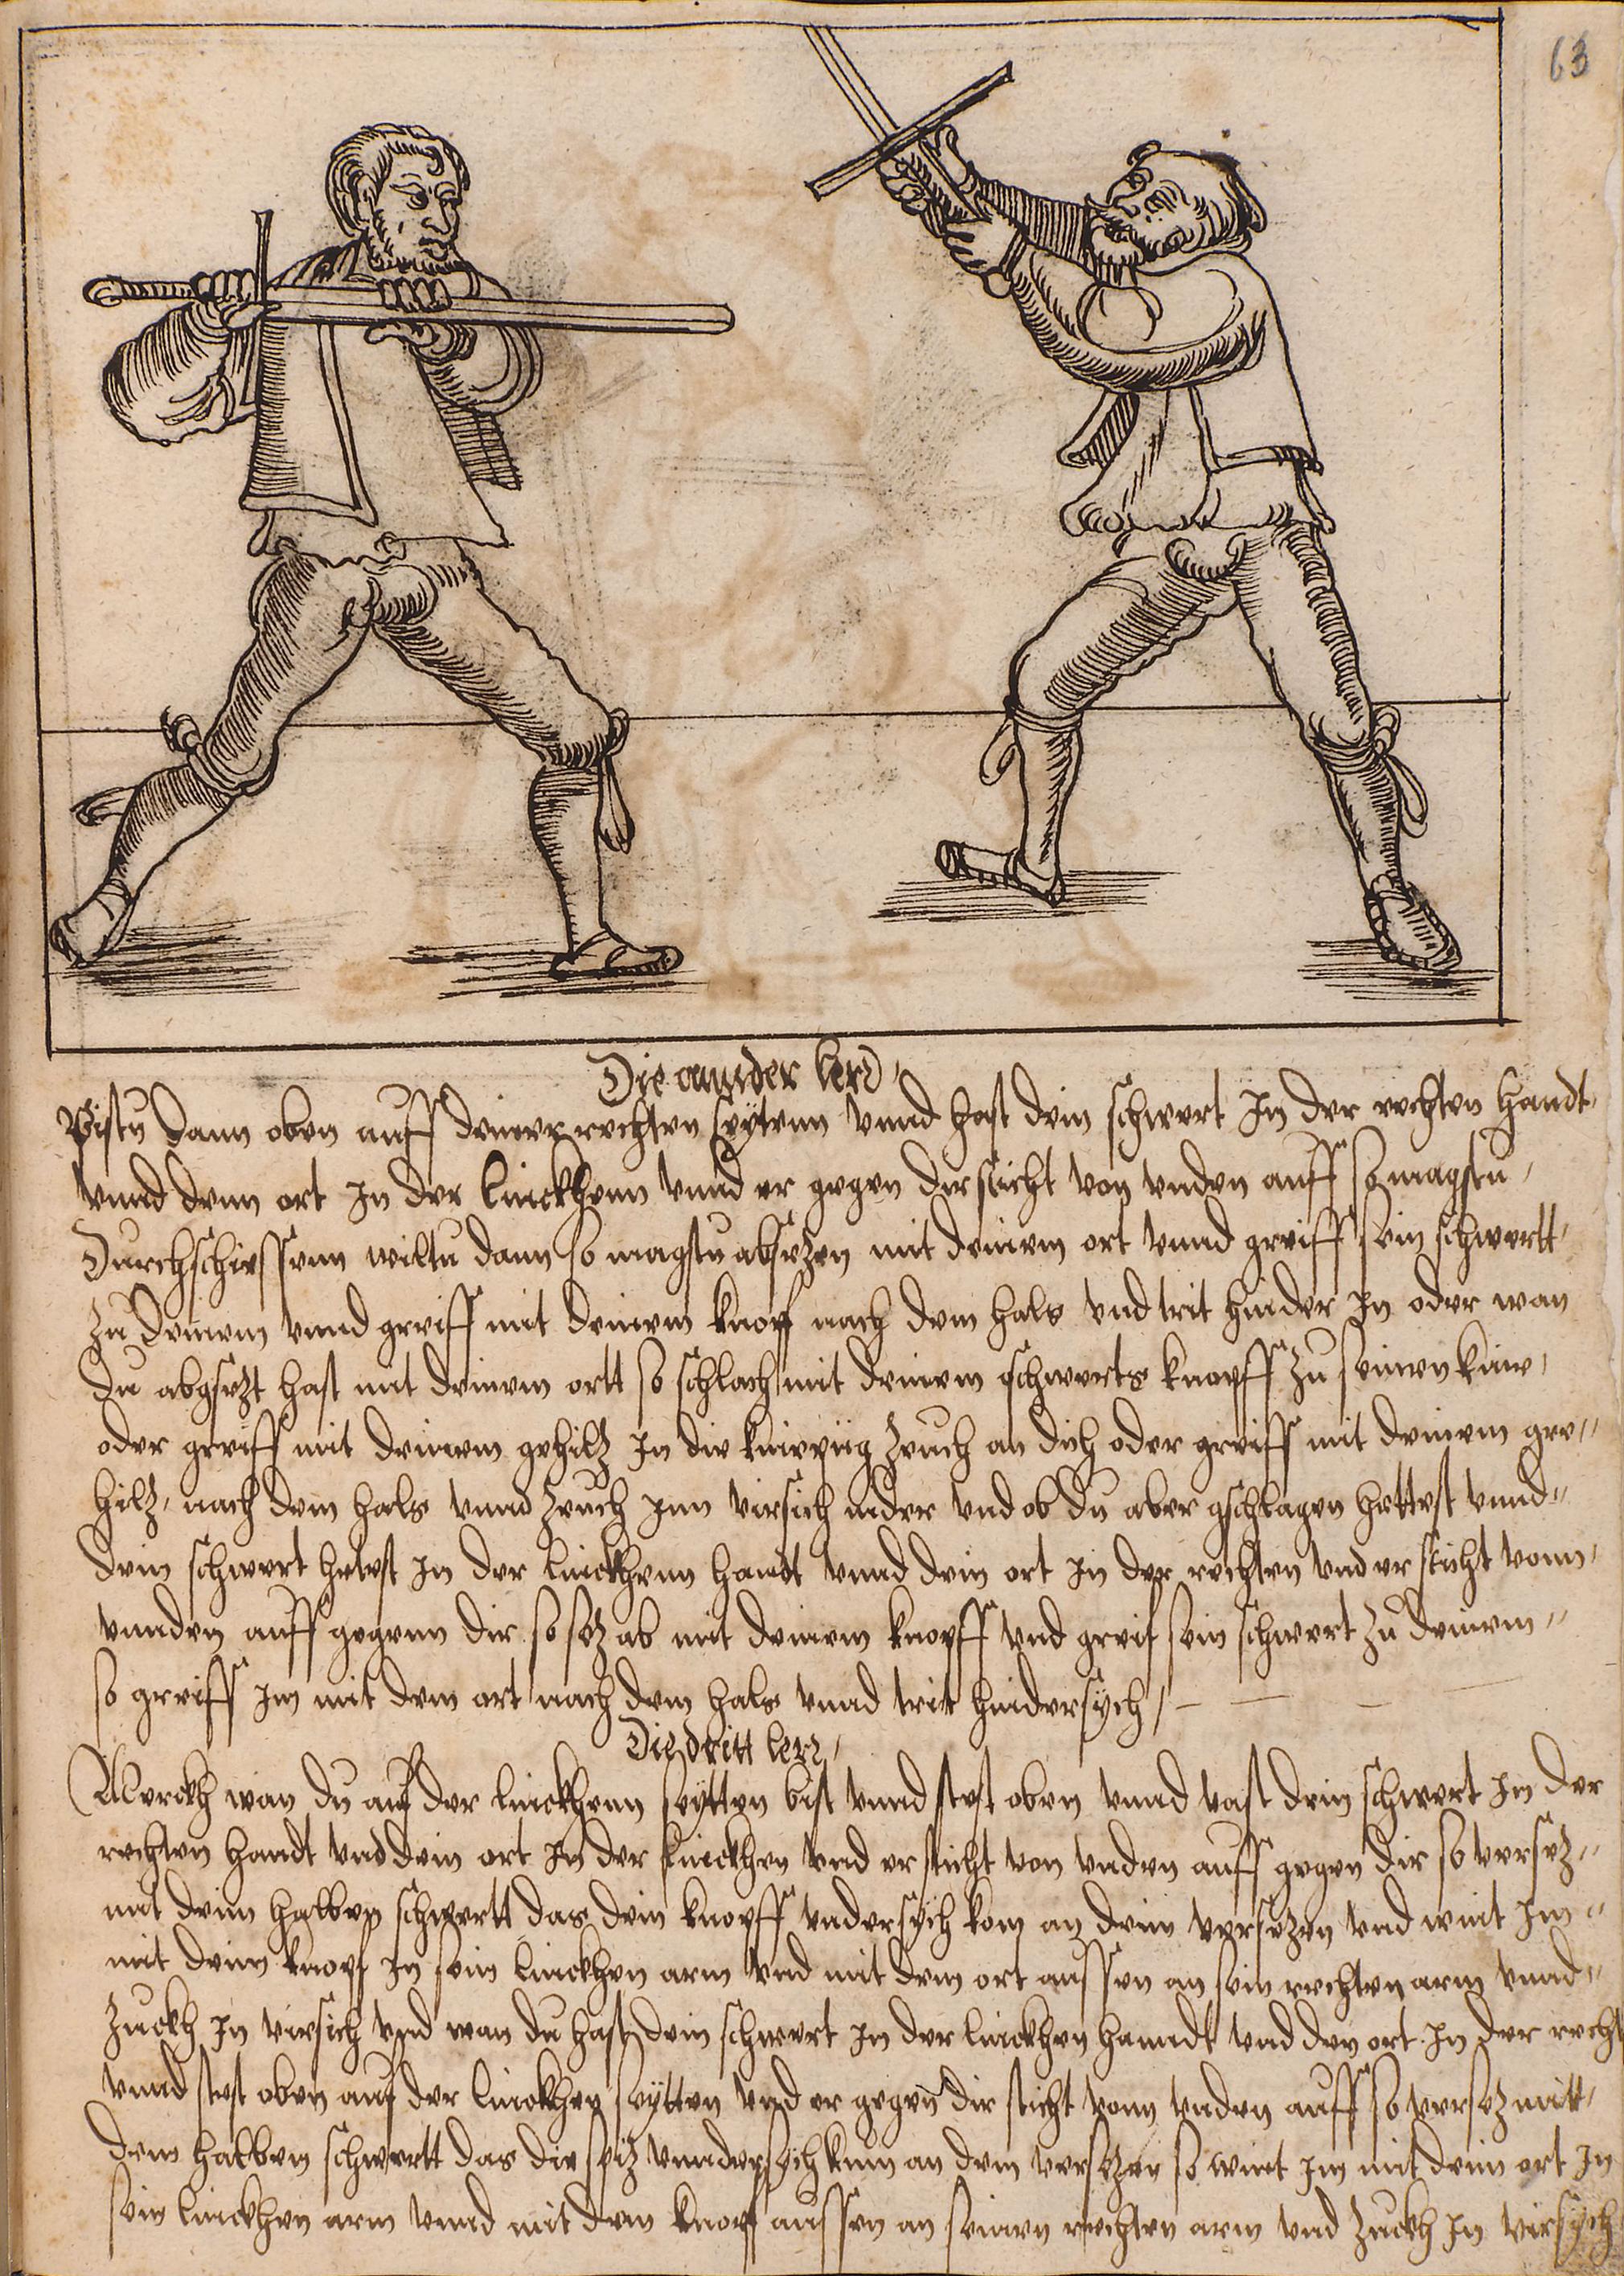 63
Die annder lere,
Bistu dann oben auff deiner rechten seytenn vnnd hast dein schwert In der rechten handt,
vnnd denn ort In der linckhenn vnnd er gegen dir sticht von vnden auff so magstu,
Durchschiessenn wiltu dann so magstu absezen mit deinem ort vnnd greiff sein schwertt,
zu deinem vnnd greiff mit deinem knopff nach dem hals vnd trit hinder In oder wan
du abgsezt hast mit deinem ortt so schlach mit deinem schwerts knopff zu seinen knie,
oder greiff mit deinem gehilz In die kniepüg zeuch an dich oder greiff mit deinem gee"
hilz, nach dem hals vnnd zeuch Inn virsich nider vnd ob du aber gschlagen hettest vnnd"
dein schwert hetest In der linckhenn handt vnnd dein ort In der rechten vnd er sticht vonn,
vnnden auff gegenn dir so sez ab mit deinem knopff vnd greif sein schwert zu deinem"
so greiff Im mit dem ort nach dem hals vnnd trit hindersych,
Die dritt lere,
Merckh wan du auf der linckhenn seytten bist vnnd stest oben vnnd hast dein schwert Im der
rechten handt vnd dein ort In der linckhen vnd er sticht von vnden auff gegen dir so versez"
mit deim halben schwertt das dein knopff vndersych kom an deim versezen vnd wint Im"
mit deim knopf In sein linckhen arm vnd mit dem ort aussen an sein rechten arm vnnd"
zuckh In virsich vnd wan du hast dein schwert In der linckhen hanndt vnd den ort In der recht
vnnd stest oben auf der linckhen seytten vnd er gegen dir sticht vonn vnden auff so versez mitt,
dem halben schwertt das die spiz vnndersych kum an dem versezen so wint Im mit deim ort In
sein linckhen arm vnnd mit dem knopf aussen an seinen rechten arm vnd zuckh In virsych